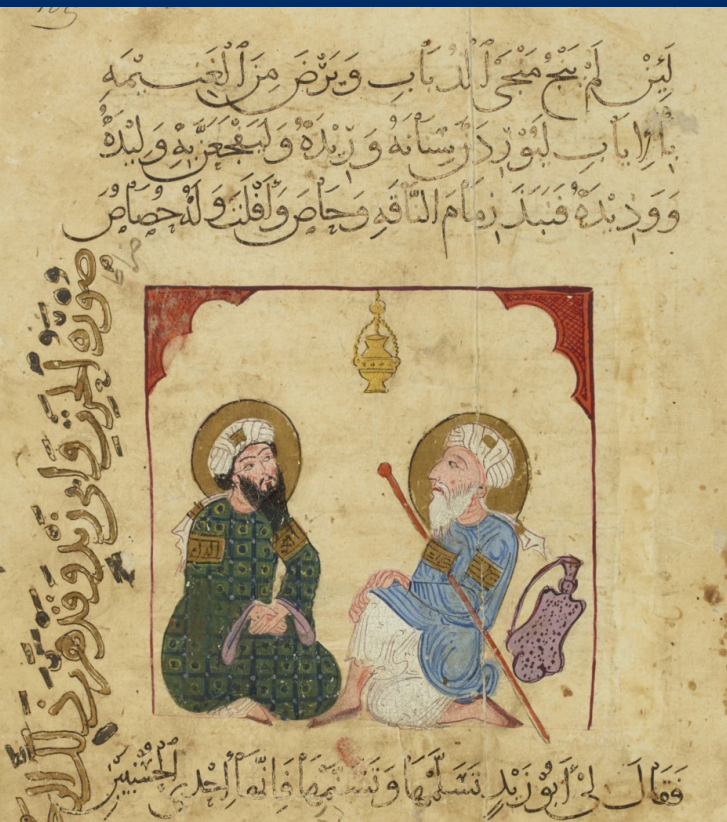 لَئِنْ لَمْ يَنْجُ مَنْجَى الذُّبَابِ وَيَرْضَ مِنَ الْغَنِيمَهِ
بِالْإِيَابِ لَيُوْرِدَنَّ سِنَانَهُ وَرِيْدَهُ وَلَيُفْجِعَنَّ بِهِ وَلِيْدَهُ
وَوَدِيْدَهُ فَنَبَذَ زِمَامَ النَّاقَهِ وَحَاصَ وَأَفْلَتَ وَلَهُ حُصَاصٌ
صورة الحرث وابى زيد وقد
فَقَالَ لِىْ أَبُوْ زَيْدٍ تَسَلَّمْهَا وَتَسَنَّمْهَا فَإِنَّهَا إِحْدَى الْحُسْنَيَيْنِ